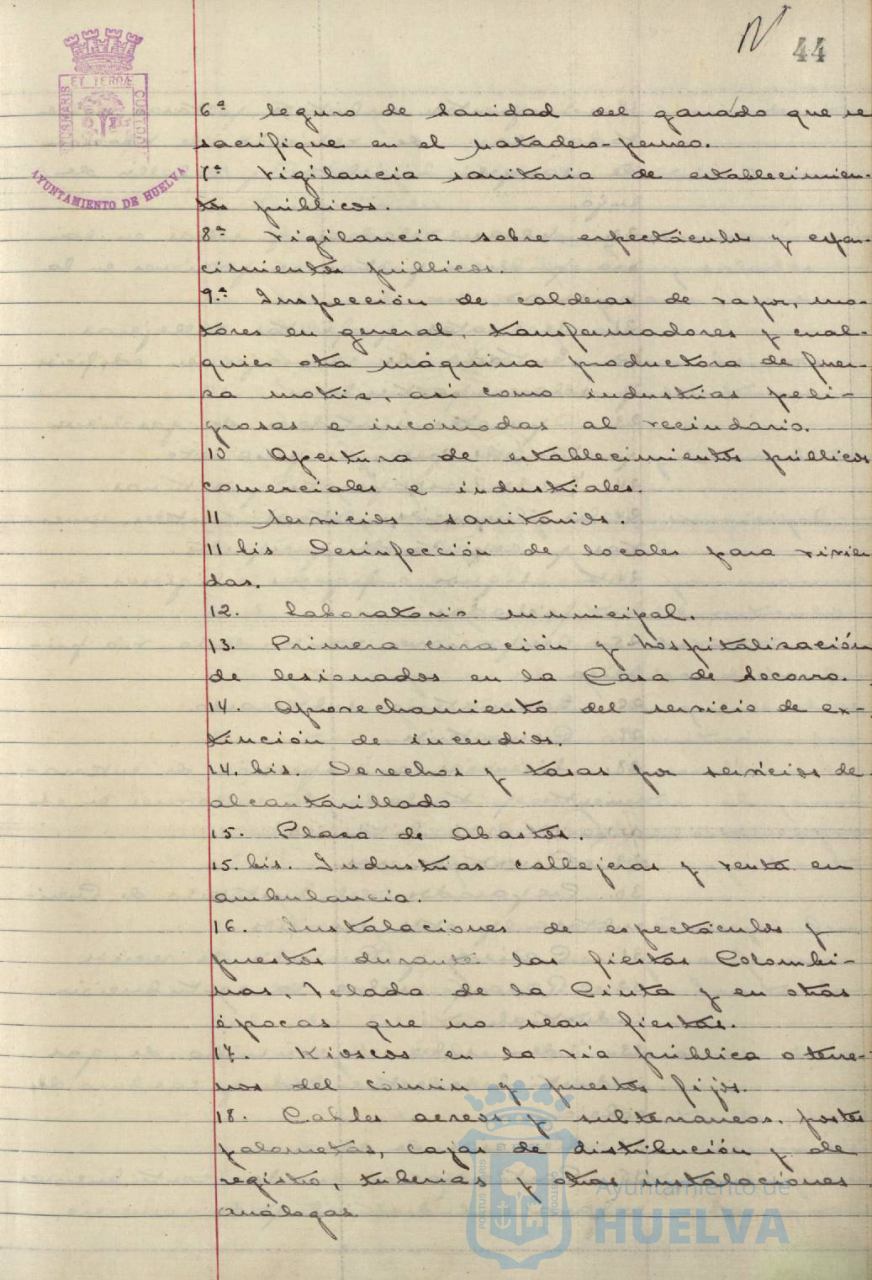 44
PORTUS MARIS
ET TERRÆ
CUSTODIA
AYUNTAMIENTO DE HUELVA
6ª Seguro de Sanidad del ganado que se
sacrifique en el matadero-
7ª Vigilancia sanitaria de establecimien-
tos públicos.
8ª Vigilancia sobre espectáculos y espar-
cimientos públicos.
9.ª Inspección de calderas de vapor, mo-
tores en general, transformadores y cual-
quier otra máquina productora de fuer-
za motriz, así como industrias peli-
grosas e incómodas al vecindario.
10 Apertura de establecimientos públicos
comerciales e industriales.
11 Servicios sanitarios.
11 bis Desinfección de locales para vivien
das.
12. Laboratorio municipal.
13. Primera curación y hospitalización
de lesionados en la Casa de Socorro.
14. Aprovechamiento del servicio de ex-
tinción de incendios.
14. bis. Derechos y tasas por servicios de
alcantarillado
15. Plaza de Abastos.
15. bis. Industrias callejeras y venta en
ambulancia.
16. Instalaciones de espectáculos y
puestos durante las fiestas Colombi-
nas, Velada de la Cinta y en otras
épocas que no sean fiestas.
17. Kioscos en la vía pública o terre-
nos del común y puestos fijos.
18. Cables aereos y subterraneos, postes
palometas, cajas de distribución y de
registro, tuberias y otras instalaciones
análogas
Ayuntamiento de
HUELVA